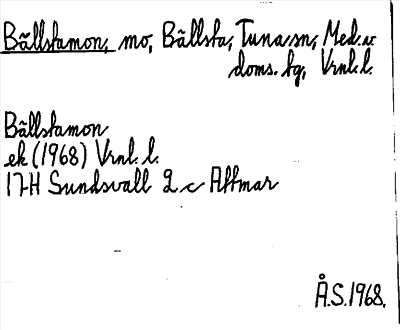 Bällstamon, mo, Bällsta, Tuna sn, Med.
doms. hg, Vrnl. l.
Bällstamon
ek (1968) Vrnl. l.
17H Sundsvall 2 c Attmar
Å.S. 1968.